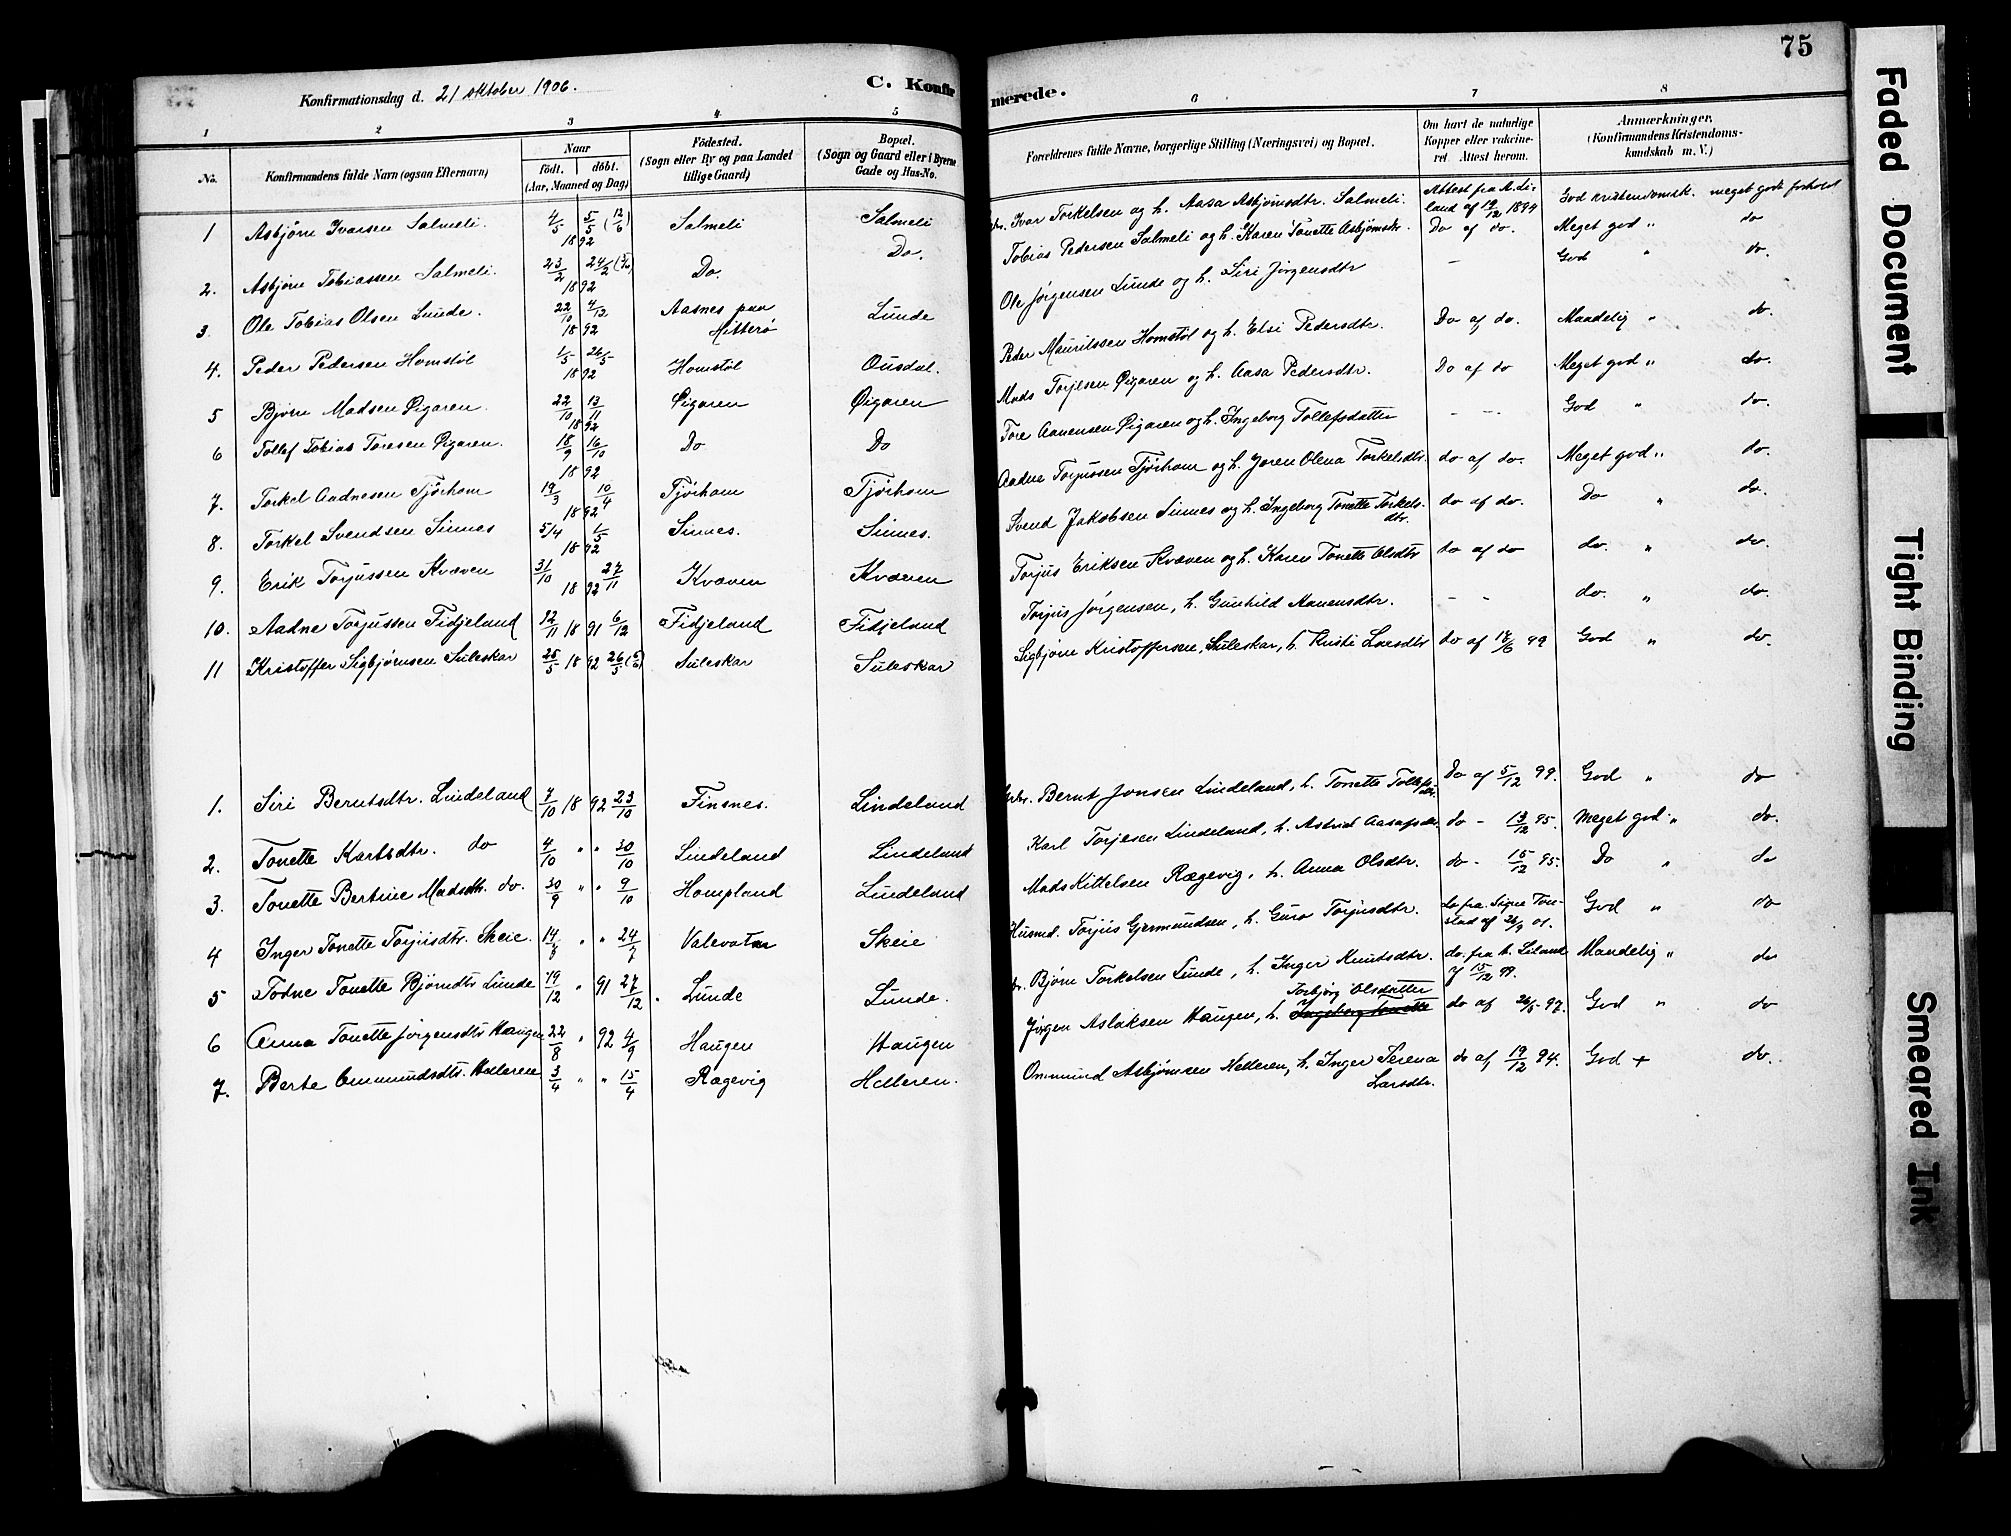 75
Konfirmationsdag d. 21 oktober 1906.
C. Konfirmerede.
1 2 3 4 5 6 7 8
No.
Konfirmandens fulde Navn (ogsaa Efternavn)
Naar
födt. döbt.
(Aar, Maaned og Dag)
Födested.
(Sogn eller By og paa Landet
tillige Gaard)
Bopæl.
(Sogn og Gaard eller i Byerne
Gade og Hus-No.
Forældrenes fulde Navne, borgerlige Stilling (Næringsvei) og Bopæl.
Om havt de naturlige
Kopper eller vakcine-
ret. Attest herom.
Anmærkninger,
(Konfirmandens Kristendoms-
kundskab m. V.)
1 Asbjørn Ivarsen Salmeli. 4/5 1892 5/5 (12/6) Salmeli Salmeli Ivar Torkelsen og h. Aasa Asbjørnsdtr. Salmeli. Attest fra A. Li-
land af 19/12 1894 God kristendomsk. meget godt forhold
2. Asbjørn Tobiassen Salmeli. 23/2 1892 24/2 Do. Do. Tobias Pedersen Salmeli og h. Karen Tonette Asbjørnsdtr. Do af do. Meget god " do
3. Ole Tobias Olsen Lunde. 22/10 1892 4/12 Aasnes paa
Hitterø Lunde Ole Jørgensen Lunde og h. Siri Jørgensdtr - God " do.
4. Peder Pedersen Homstøl 1/5 1892 26/5 Homstøl Ousdal. Peder Mauritssen Homstøl og h. Elsi Pedersdtr. Do af do. Maadelig " do.
5 Bjørn Madsen Øigaren. 22/10 1892 13/11 Øigaren Øigaren Mads Torjesen Øigaren og h. Aasa Pedersdtr. Do af do Meget god " do.
6 Tollef Tobias Toresen Øigaren. 18/9 1892 16/10 Do Do Tore Aanensen Øigaren og h. Ingeborg Tollefsdatter - - God " do.
7. Torkel Aadnesen Tjørhom 19/3 1892 10/4 Tjørhom Tjørhom Aadne Torjussen Tjørhom og h. Joren Olena Torkelsdtr. do af do. Meget god " do.
8. Torkel Svendsen Sinnes 5/4 1892 1/5 Sinnes. Sinnes. Svend Jakobsen Sinnes og h. Ingeborg Tonette Torkels-
dtr. do af do. Do " do.
9. Erik Torjussen Kvæven 31/10 1892 27/11 Kvæven Kvæven Torjus Eriksen Kvæven og h. Karen Tonette Olsdtr do af do do. " do.
10. Aadne Torjussen Fidjeland 22/11 1891 6/12 Fidjeland Fidjeland Torjus Jørgensen, h. Gunhild Aanensdtr. - - do. " do.
11 Kristoffer Sigbjørnsen Suleskar 25/5 1892 26/5 Suleskar Suleskar Sigbjørn Kristoffersen, Suleskar, h. Kristi Larsdtr do af 18/6 99 God " do.
1. Siri Berntsdtr. Lindeland 7/10 1892 23/10 Finsnes. Lindeland Bernt Jonsen Lindeland, h. Tonette Tollefsdtr. Do af 5/12 99. God " do
2. Tonette Karlsdtr. do 4/10 " " 30/10 Lindeland Lindeland Karl Torjesen Lindeland, h. Astrid do - 13/12 95. Meget god " do.
3. Tonette Bertine Madsdtr. do. 30/9 " " 9/10 Hompland Lindeland Mads Kittelsen Rægevig, h. Anna Olsdtr. do - 15/12 95. Do " do
4 Inger Tonette Torjusdtr. Skeie. " " 24/7 Valevatn Skeie Husmd. Torjus Gjermundsen, h. Guro Torjusdtr. do fra Signe Ton-
stad af 26/9 01. God " do
5 Todne Tonette Bjørndtr Lunde 19/12 " 91 27/12. Lunde Lunde. Bjørn Torkelsen Lunde, h. Inger Knutsdtr. do. fra A. Liland
af 15/12 99. Maadelig " do
6 Anna Tonette Jørgensdtr Haugen 22/8 " 92 4/9 Haugen Haugen Jørgen Aslaksen Haugen, h. Torbjørg Olsdatter
Ingeborg Tonette do af 26/5 97. God " do
7. Berte Ommundsdtr. Helleren 3/4 " " 15/4 Rægevig Helleren. Ommund Asbjørnsen Helleren, h. Inger Serena
Larsdtr. do af 19/12 94. God + do.
Faded Document
Tight Binding
Smeared Ink